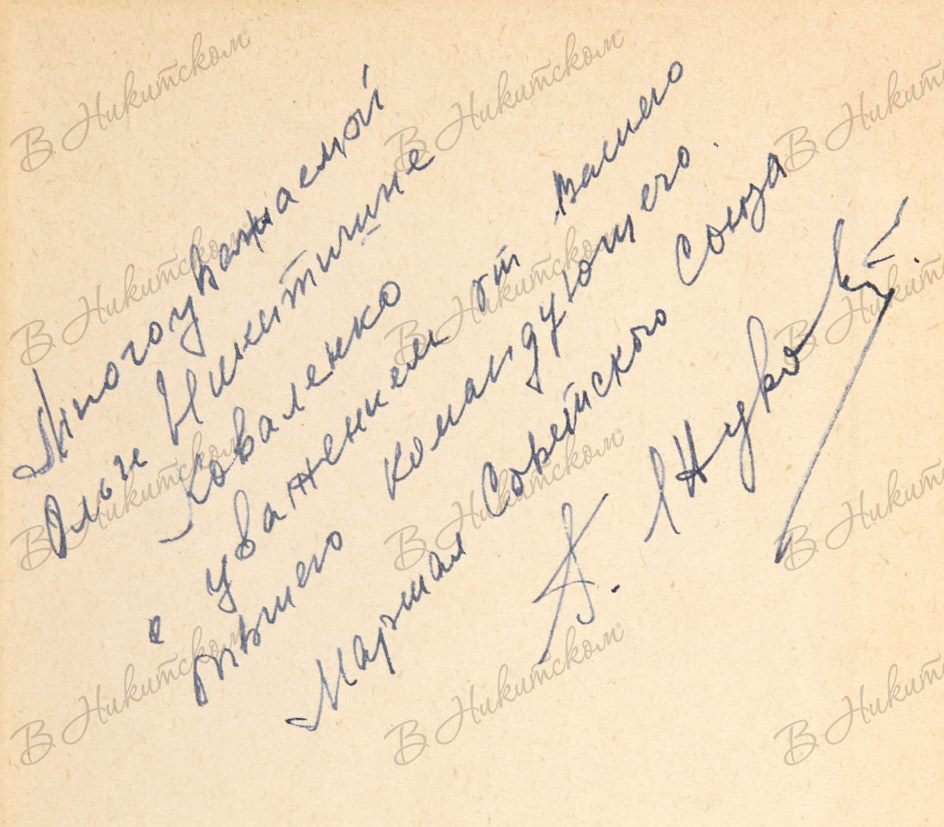 Многоуважаемой
Ольге Никитичне
Коваленко
с уважением от вашего
бывшего командующего.
Маршал Советского Союза
Г. Жуков
В Никитском
В Никитском
В Никитском
В Никитском
В Никитском
В Никитском
В Никитском
В Никитском
В Никитском
В Никитском
В Никитском
В Никитском